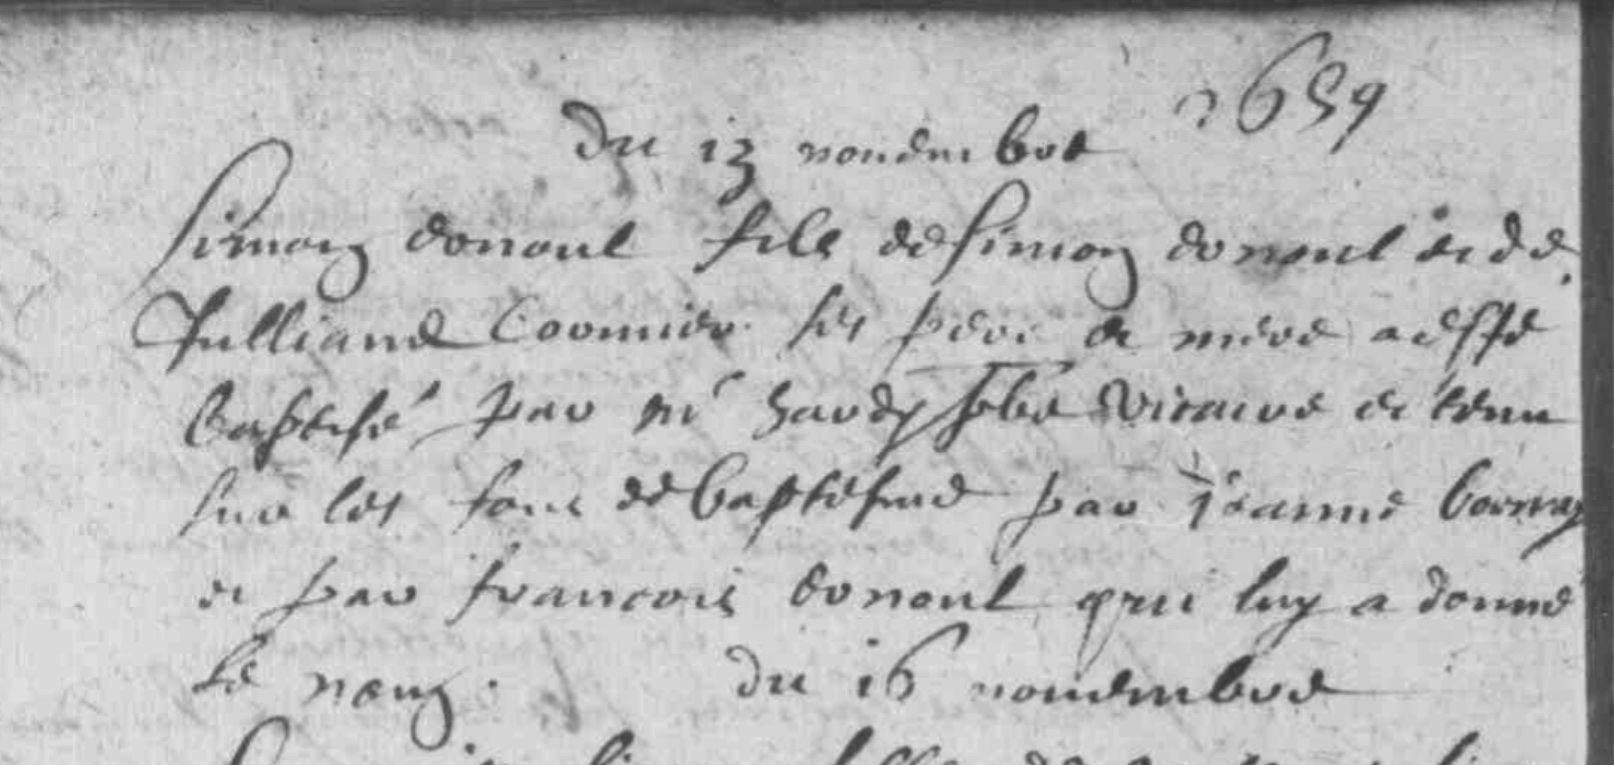 1659
du 13 nouembre
Simon donoul fils de Simon donoul et de
Julliane Cormier ses pere et mere a esté
baptisé par mr hardy pbre vicaire et tenu
sur les fons de baptesme par Jeanne
et par francois donoul qui luy a donné
le nom. du 16 nouembre